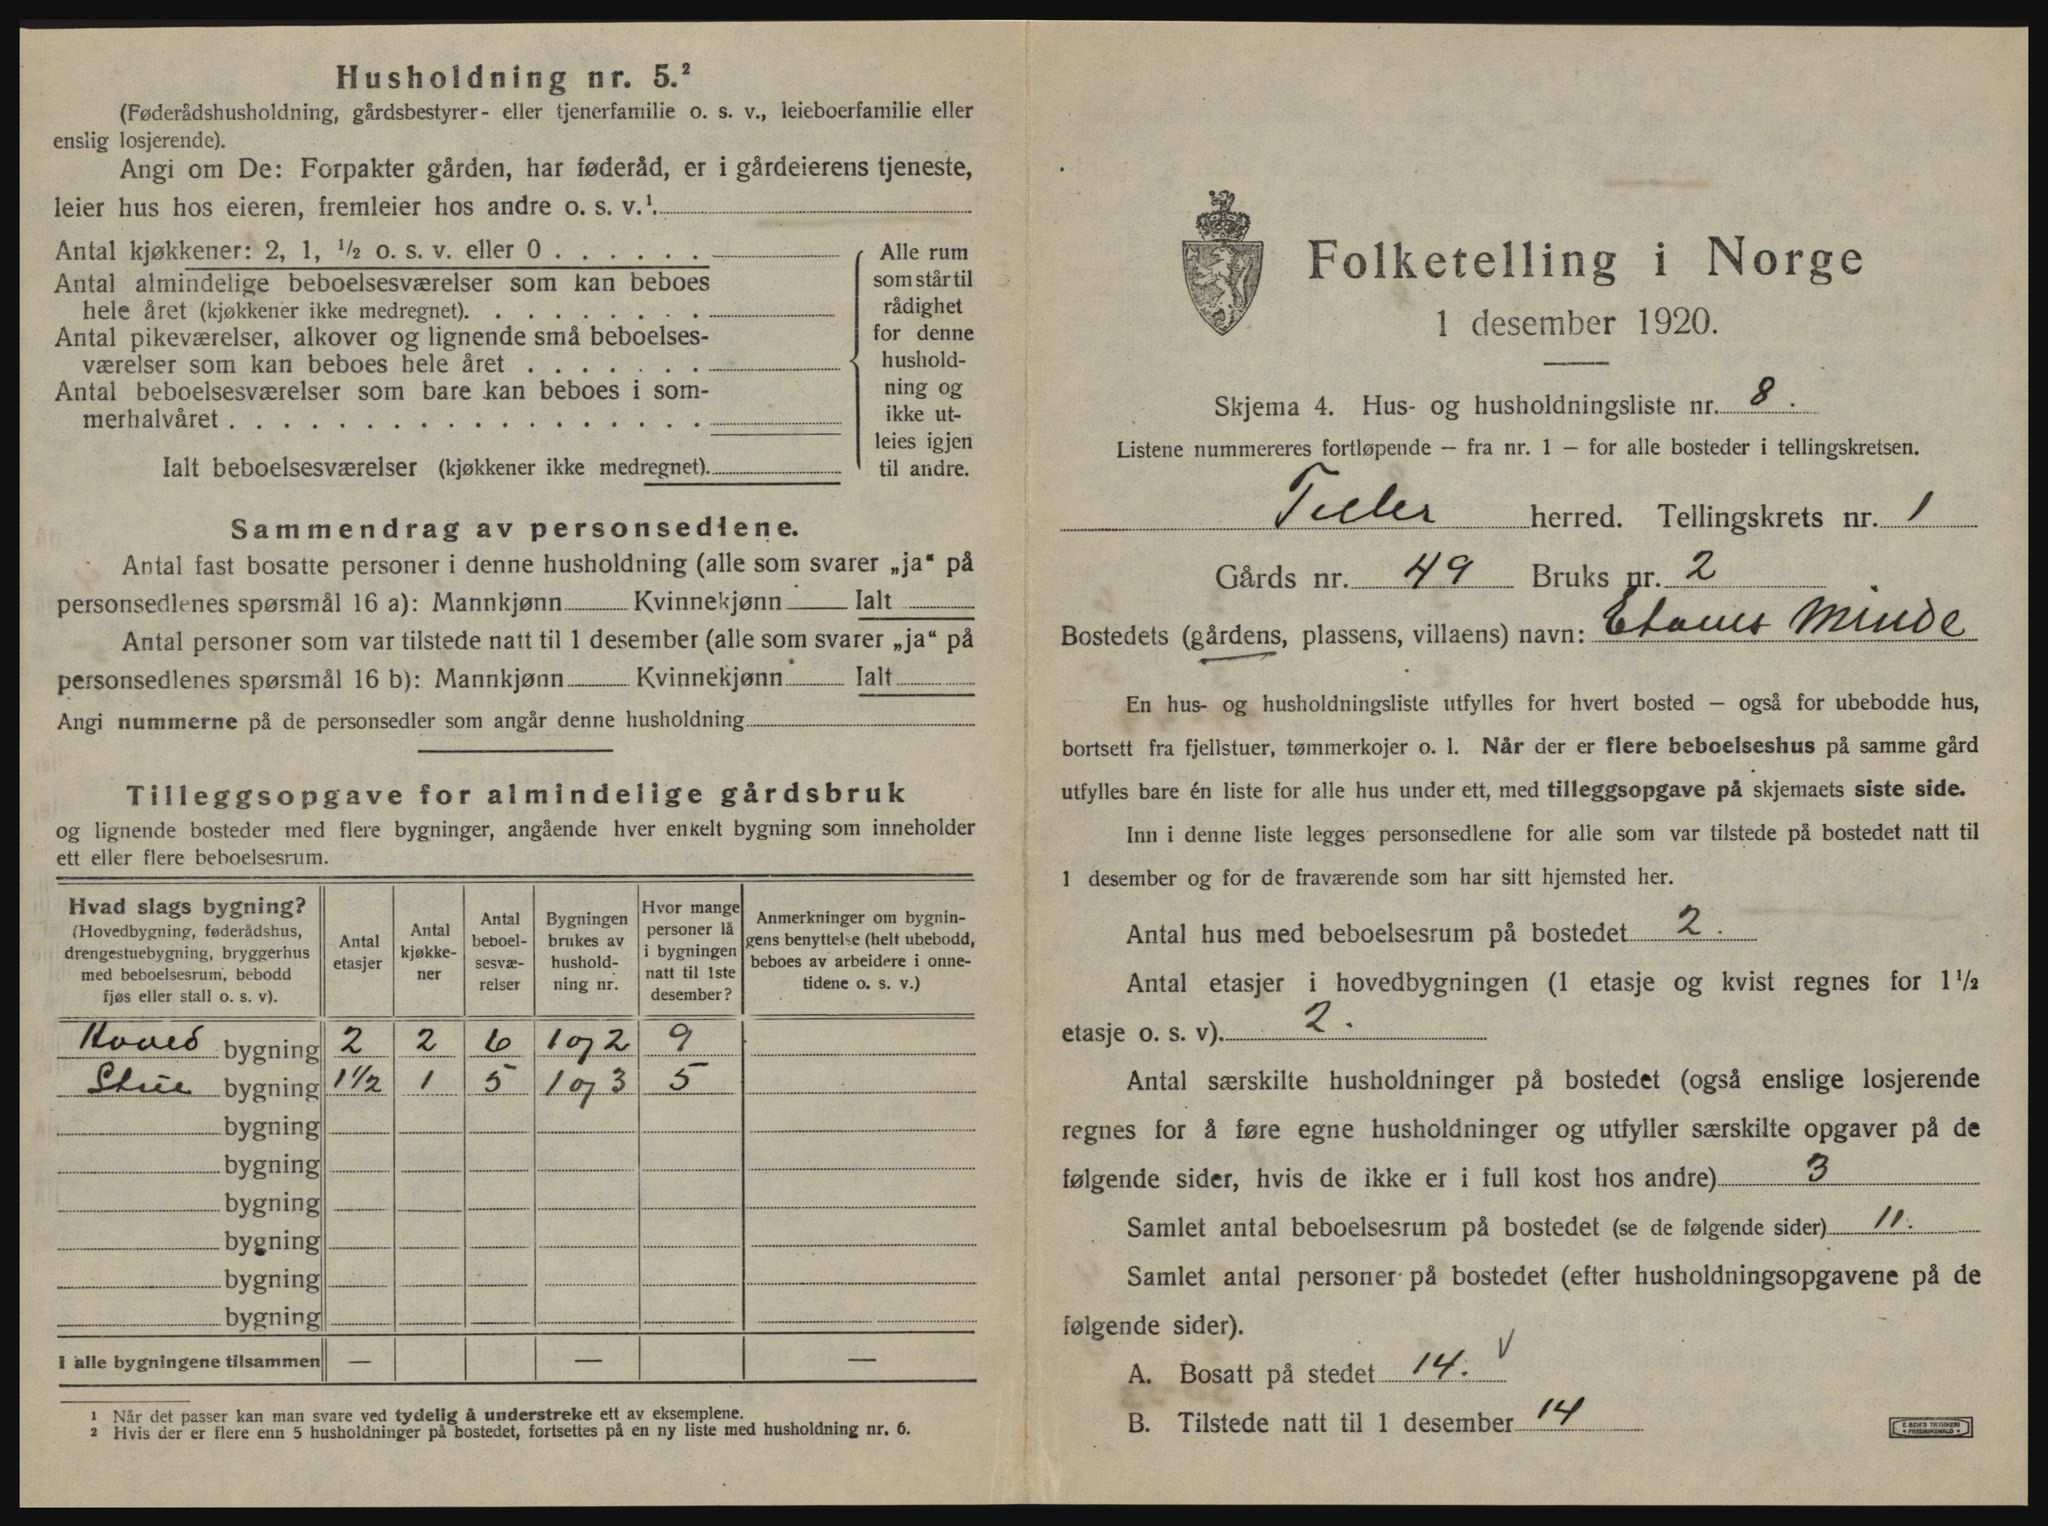 Husholdning nr. 5.²
(Føderådshusholdning, gårdsbestyrer- eller tjenerfamilie o. s. v., leieboerfamilie eller
enslig losjerende).
Angi om De: Forpakter gården, har føderåd, er i gårdeierens tjeneste,
leier hus hos eieren, fremleier hos andre o. s. v.¹.
Antal kjøkkener: 2, 1, ½ o. s. v. eller 0 . . . . . .
Antal almindelige beboelsesværelser som kan beboes
hele året (kjøkkener ikke medregnet). . . . . . . . .
Antal pikeværelser, alkover og lignende små beboelses-
værelser som kan beboes hele året . . . . . . .
Antal beboelsesværelser som bare kan beboes i som-
merhalvåret . . . . . . . . . . . . . . . . . .
Ialt beboelsesværelser (kjøkkener ikke medregnet).
Alle rum
som står til
rådighet
for denne
hushold-
ning og
ikke ut-
leies igjen
til andre.
Sammendrag av personsedlene.
Antal fast bosatte personer i denne husholdning (alle som svarer „ja“ på
personsedlenes spørsmål 16 a): Mannkjønn Kvinnekjønn Ialt
Antal personer som var tilstede natt til 1 desember (alle som svarer „ja“ på
personsedlenes spørsmål 16 b): Mannkjønn Kvinnekjønn Ialt
Angi nummerne på de personsedler som angår denne husholdning
Tilleggsopgave for almindelige gårdsbruk
og lignende bosteder med flere bygninger, angående hver enkelt bygning som inneholder
ett eller flere beboelsesrum.
Hvad slags bygning?
(Hovedbygning, føderådshus,
drengestuebygning, bryggerhus
med beboelsesrum, bebodd
fjøs eller stall o. s. v).
Antal
etasjer
Antal
kjøkke-
ner
Antal
beboel-
sesvæ-
relser
Bygningen
brukes av
hushold-
ning nr.
Hvor mange
personer lå
i bygningen
natt til 1ste
desember?
Anmerkninger om bygnin-
gens benyttelse (helt ubebodd,
beboes av arbeidere i onne-
tidene o. s. v.)
Hoved bygning 2 2 6 1 og 2 9
Stue bygning 1½ 1 5 1 og 3 5
bygning
bygning
bygning
bygning
bygning
bygning
I alle bygningene tilsammen — — —
¹ Når det passer kan man svare ved tydelig å understreke ett av eksemplene.
² Hvis der er flere enn 5 husholdninger på bostedet, fortsettes på en ny liste med husholdning nr. 6.
Folketelling i Norge
1 desember 1920.
Skjema 4. Hus- og husholdningsliste nr. 8.
Listene nummereres fortløpende – fra nr. 1 – for alle bosteder i tellingskretsen.
Tiller herred. Tellingskrets nr. 1
Gårds nr. 49 Bruks nr. 2
Bostedets (gårdens, plassens, villaens) navn: Minde
En hus- og husholdningsliste utfylles for hvert bosted – også for ubebodde hus,
bortsett fra fjellstuer, tømmerkojer o. l. Når der er flere beboelseshus på samme gård
utfylles bare én liste for alle hus under ett, med tilleggsopgave på skjemaets siste side.
Inn i denne liste legges personsedlene for alle som var tilstede på bostedet natt til
1 desember og for de fraværende som har sitt hjemsted her.
Antal hus med beboelsesrum på bostedet 2.
Antal etasjer i hovedbygningen (1 etasje og kvist regnes for 1½
etasje o. s. v). 2.
Antal særskilte husholdninger på bostedet (også enslige losjerende
regnes for å føre egne husholdninger og utfyller særskilte opgaver på de
følgende sider, hvis de ikke er i full kost hos andre) 3
Samlet antal beboelsesrum på bostedet (se de følgende sider) 11.
Samlet antal personer på bostedet (efter husholdningsopgavene på de
følgende sider).
A. Bosatt på stedet 14. V
B. Tilstede natt til 1 desember 14